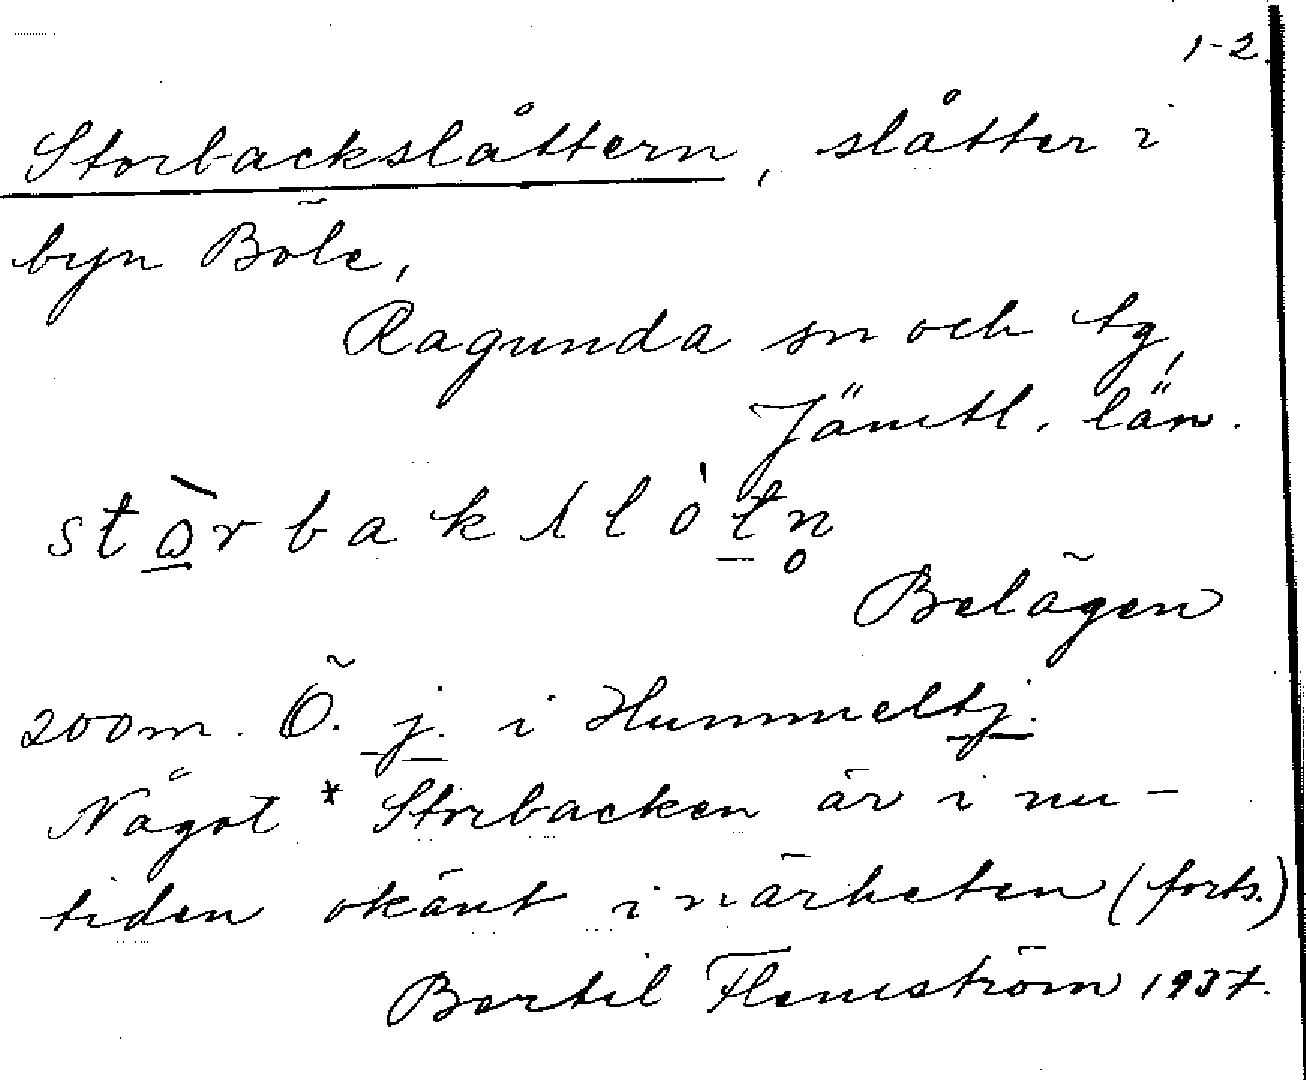 1-2.
Storbackslåttern, slåtter i
byn Böle,
Ragunda sn och tg,
Jämtl. län.
stòrbakslòtn̥
Belägen
200 m. Ö. j. i Hummeltj.
Något *Storbacken är i nu-
tiden okänt i närheten (forts.)
Bertil Flemström 1937.